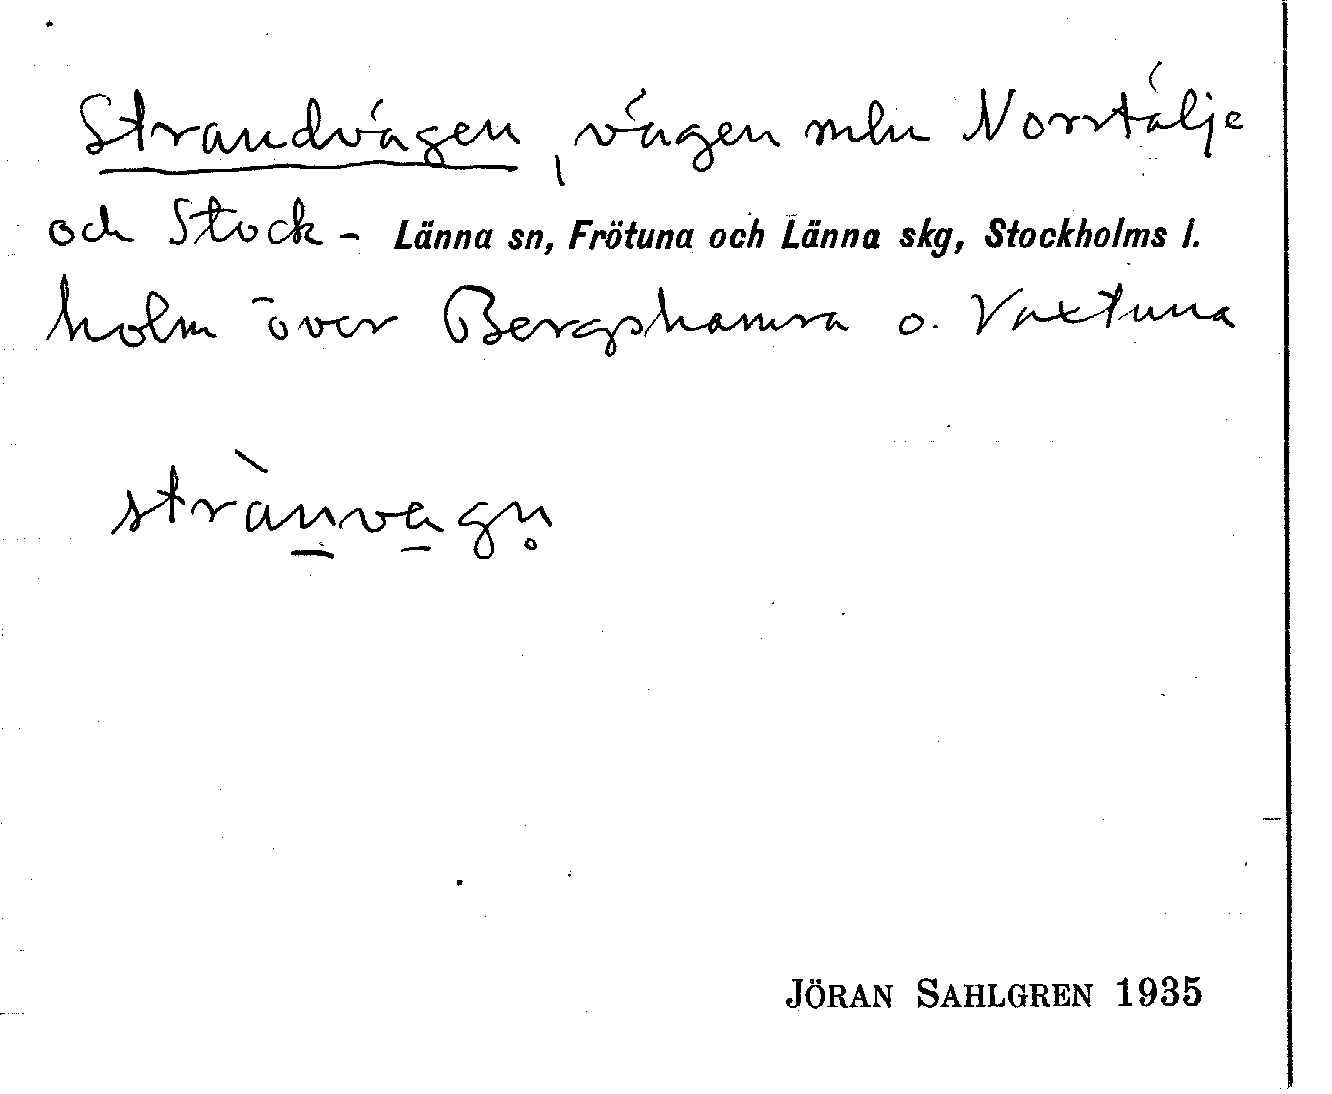 Strandvägen, vägen mln Norrtälje
och Stock- Länna sn, Frötuna och Länna skg, Stockholms l.
holm över Bergshamra o. Vaxtuna
strànvegn̥
JÖRAN SAHLGREN 1935